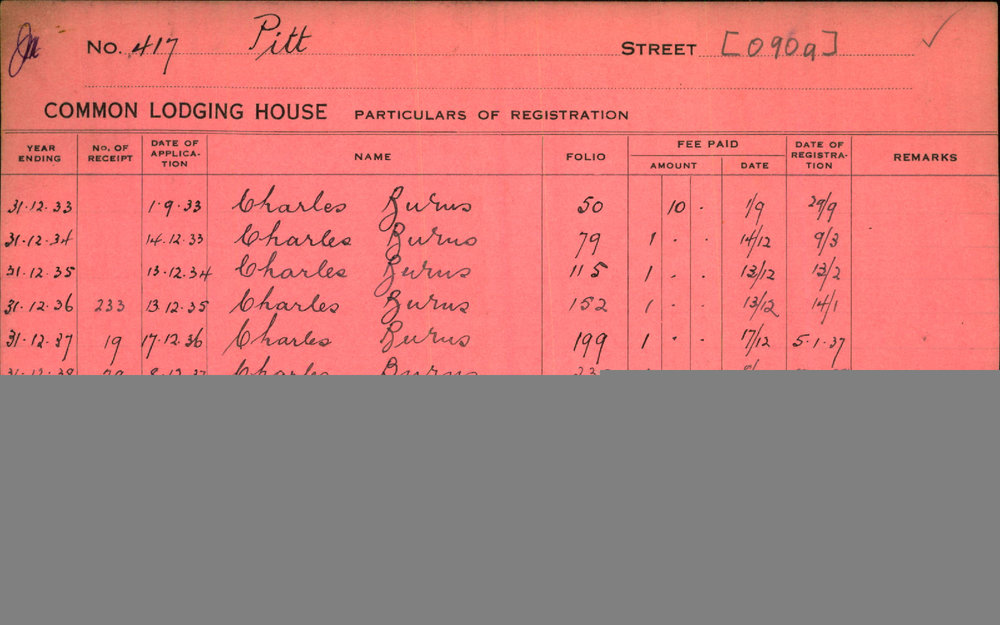 No. 417 Pitt STREET [0909]
COMMON LODGING HOUSE PARTICULARS OF REGISTRATION
YEAR ENDING No. OF RECEIPT DATE OF APPLICA-TION NAME FOLIO FEE PAID AMOUNT DATE DATE OF REGISTRA-TION REMARKS
31.12.33 1.9.33 Charles Burns 50 10 . 1/9 29/9
31.12.34 14.12.33 Charles Burns 79 1 . . 14/12 9/3
31.12.35 13.12.34 Charles Burns 115 1 . . 13/12 13/2
31.12.36 233 13.12.35 Charles Burns 152 1 . . 13/12 14/1
31.12.37 19 17.12.36 Charles Burns 199 1 . . 17/12 5.1.37
31.12.38 Charles Burns